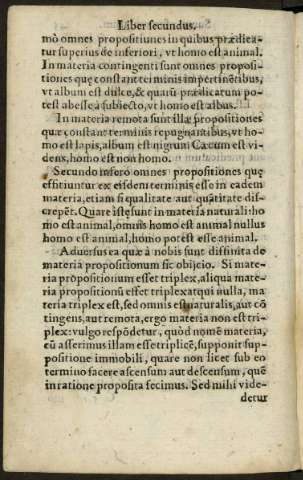 Liber secundus.
mò omnes propositiones in quibus prædica-
tur superius de inferiori, vt homo est animal.
In materia contingenti sunt omnes proposi-
tiones quę constant terminis impertinẽtibus,
vt album est dulce, & quarũ prædicatum po-
test abesse a subiecto, vt homo est albus.
In materia remota sunt illæ propositiones
quæ constant terminis repugnantibus, vt ho-
mo est lapis, album est nigrum Cæcum est vi-
dens, homo est non homo.
Secundo infero omnes propositiones quę
effitiuntur ex eisdem terminis esse in eadem
materia, etiam si qualitate aut quãtitate dis-
crepẽt. Quare istę sunt in materia naturali ho
mo est animal, omnis homo est animal nullus
homo est animal, homo potest esse animal.
Aduersus ea quæ à nobis sunt diffinita de
materia propositionum sic obijcio. Si mate-
ria propositionum esset triplex, aliqua mate-
ria propositionũ esset triplex atqui nulla, ma
teria triplex est, sed omnis est naturalis, aut cõ
tingens, aut remota, ergo materia non est tri-
plex: vulgo respõdetur, quòd nomẽ materia,
cũ asserimus illam esse triplicẽ, supponit sup-
positione immobili, quare non licet sub eo
termino facere ascensum aut descensum, quẽ
in ratione proposita fecimus. Sed mihi vide-
detur